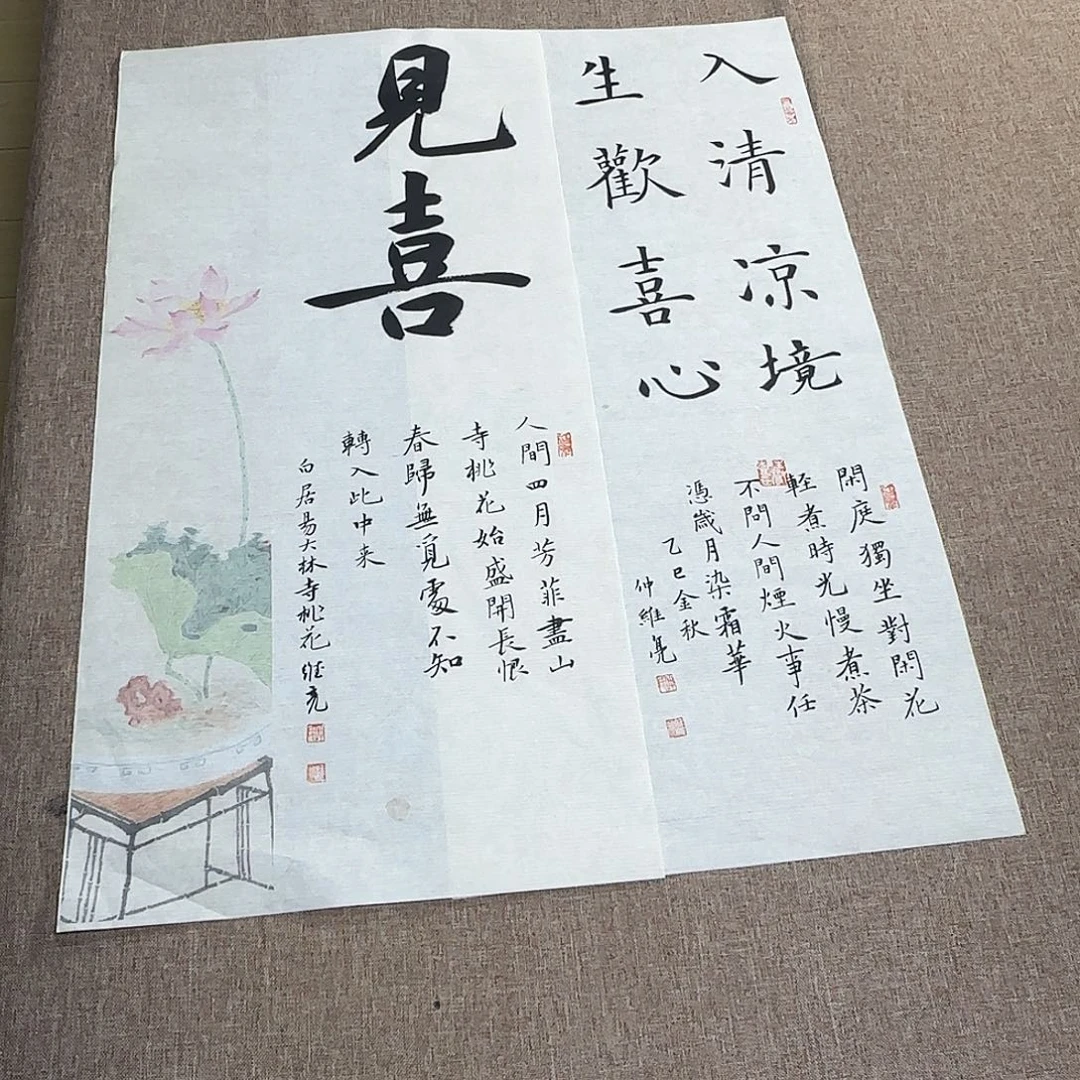 入清凉境
生歡喜心
閑庭獨坐對閑花
輕煮時光慢煮茶
不問人間煙火事任
憑歲月染霜華
乙巳金秋
仲維亮
見喜
人間四月芳菲盡山
寺桃花始盛開長恨
春歸無覓處不知
轉入此中来
白居易大林寺桃花維亮